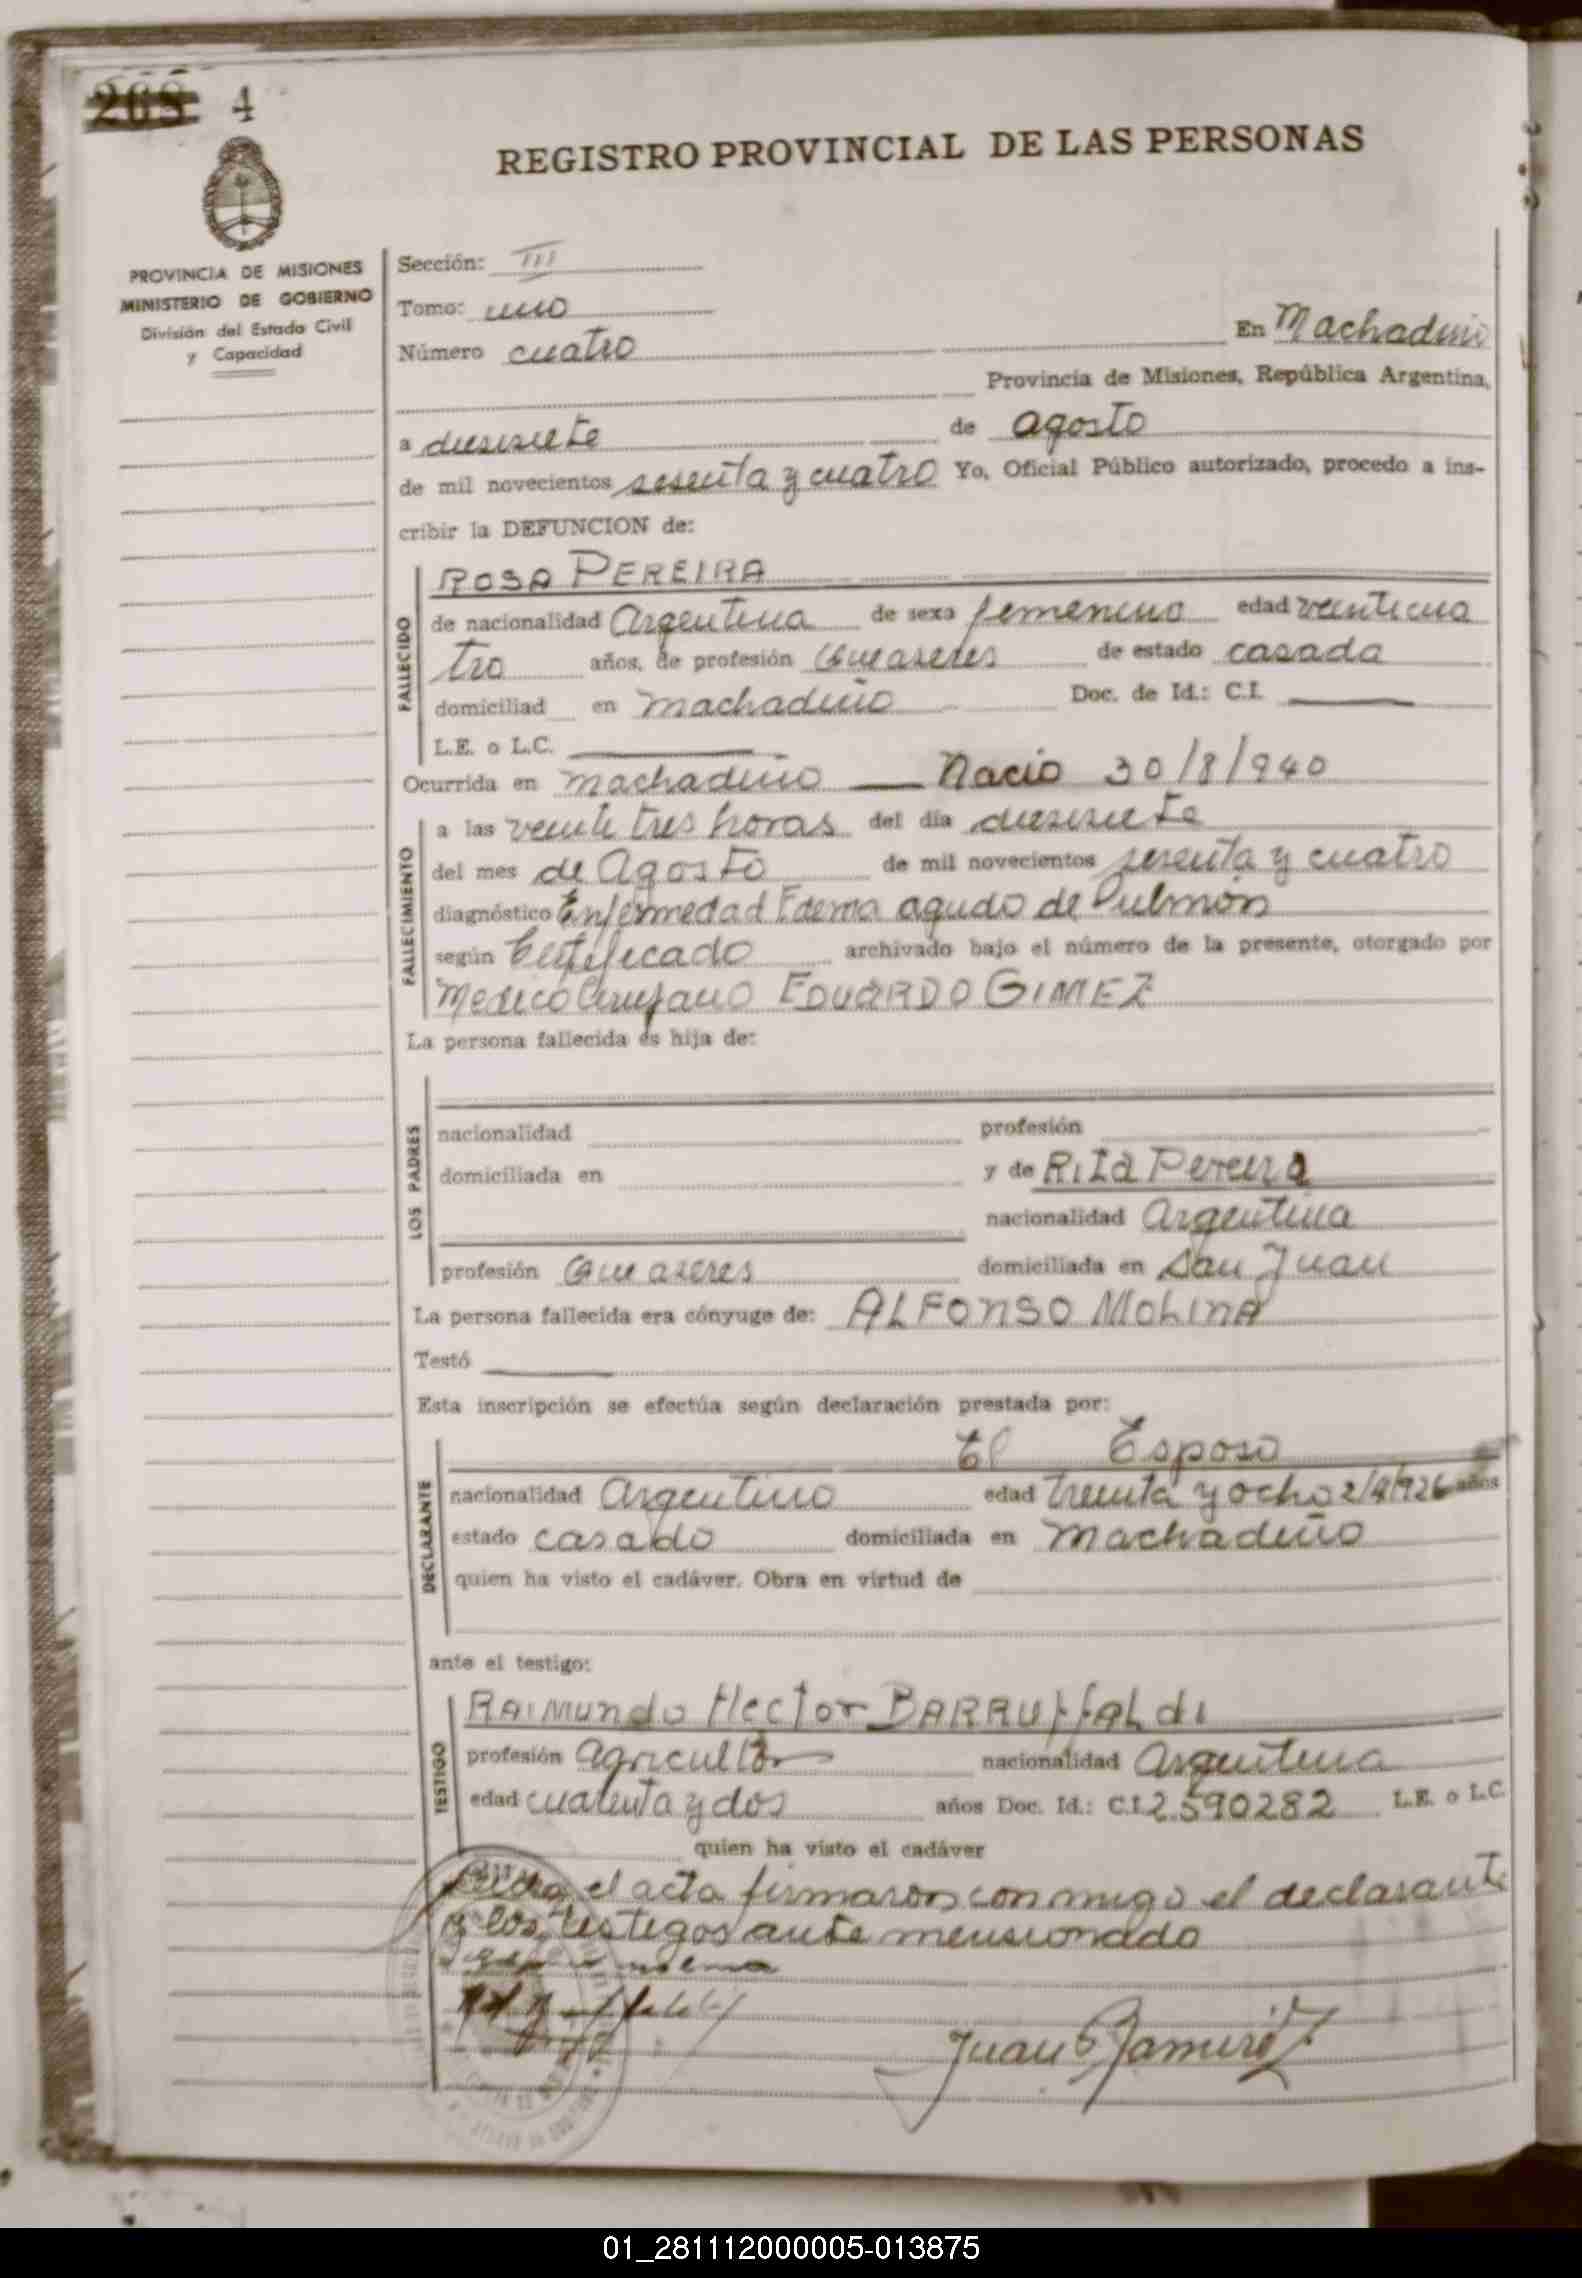 268 4
REGISTRO PROVINCIAL DE LAS PERSONAS
PROVINCIA DE MISIONES
MINISTERIO DE GOBIERNO
División del Estado Civil
y Capacidad
Sección: III
Tomo: uno
Número cuatro
En Machadiño
Provincia de Misiones, República Argentina,
a diesisiete de agosto
de mil novecientos sesenta y cuatro Yo, Oficial Público autorizado, procedo a ins-
cribir la DEFUNCION de:
FALLECIDO
ROSA PEREIRA
de nacionalidad Argentina de sexo femenino edad veinticua
tro años, de profesión Queaseres de estado casada
domiciliad en Machadiño Doc. de Id.: C.I.
L.E. o L.C.
Ocurrida en Machadiño Nacio 30/8/940
FALLECIMIENTO
a las veinte tres horas del día diesisiete
del mes de Agosto de mil novecientos sesenta y cuatro
diagnóstico Enfermedad Edema agudo de Pulmón
según Certificado archivado bajo el número de la presente, otorgado por
Medico Cirujano EDUARDO GIMEZ
La persona fallecida es hija de:
LOS PADRES
nacionalidad profesión
domiciliada en y de Rita Pereira
nacionalidad Argentina
profesión Queaseres domiciliada en San Juan
La persona fallecida era cónyuge de: ALFONSO MOLINA
Testó
Esta inscripción se efectúa según declaración prestada por:
DECLARANTE
El Esposo
nacionalidad Argentino edad treinta y ocho 2/8/926 años
estado casado domiciliada en Machadiño
quien ha visto el cadáver. Obra en virtud de
ante el testigo:
TESTIGO
RAIMUNDO Hector BARRUffALdi
profesión agricultor nacionalidad Argentina
edad cuarenta y dos años Doc. Id.: C.I. 2.590282 L.E. o L.C.
quien ha visto el cadáver
Leida el acta firmaron conmigo el declarante
y los testigos ante mensionado
Juan Ramirez
01_281112000005-013875